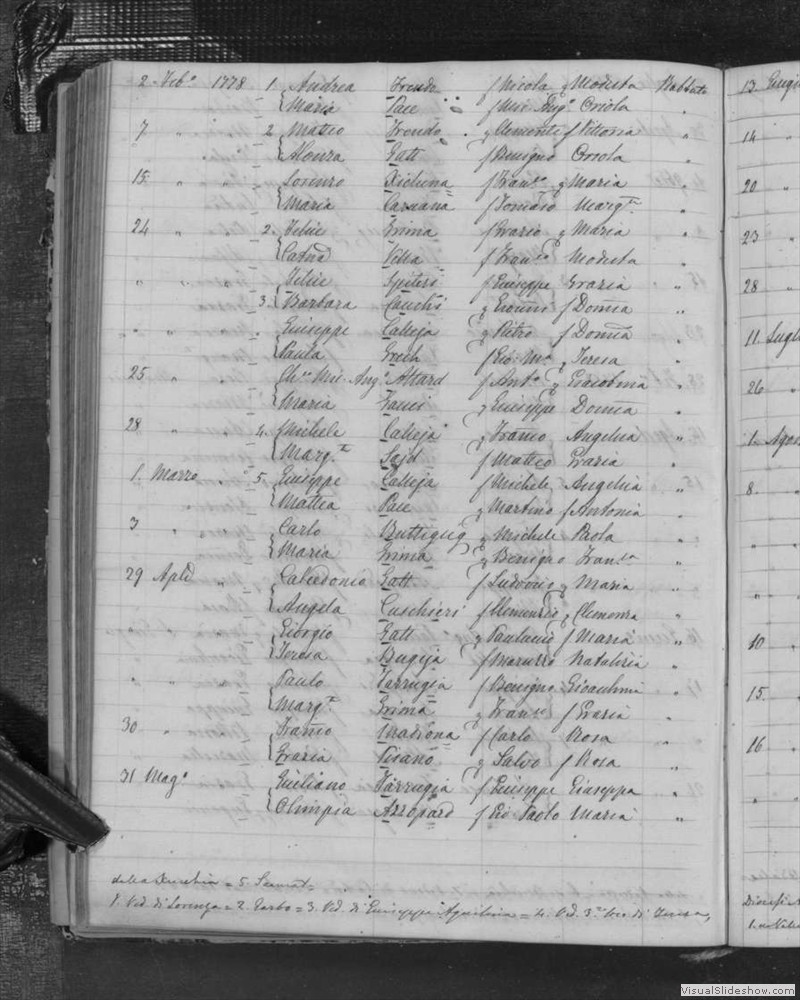 2 Feb° 1778 1 Andrea Frendo f Nicola q Modesta Rabbato
Maria Pace f Mic Ang° Oriola "
7 " " 2 Matteo Frendo q Clemente f Vittoria "
Alonza Gatt f Benigno Oriola "
15 " " Lorenzo Xicluna f Fran.co q Maria "
Maria Caruana f Tomaso Marg.ta "
24 " 2. Felice Grima f Grazio q Maria "
Catna Vella f Fran.co Modesta "
" " " Felice Spiteri f Giuseppe Grazia "
3. Barbara Cauchi q Gio f Domca "
" " " Giuseppe Calleja q Pietro f Domca "
Paula Grech f Gio M.a q Teresa "
25 " Mic. Ang° Attard f Ant° q Giacobina "
Maria q Giuseppe Domca "
28 " " 4. Michele Calleja q Franco Angelica "
Marg.ta Said f Matteo Grazia "
1. Marzo " 5 Giuseppe Calleja f Michele Angelica "
Mattia Pace q Martino f Antonia "
3 " Carlo Buttigieg q Michele Paola "
Maria Grima q Benigno Fran.ca "
29 Aple " Calcedonio Gatt f Ludovico q Maria "
Angela Cuschieri f Clemenzio q Clemenza "
Giorgio Gatt q Paulino f Maria "
Teresa Bugeja f Maruzzo Natalizia "
" " " Paulo Farrugia f Benigno Gioachma "
Marg.ta Grima q Fran.co f Grazia "
30 " Franco Madiona f Carlo Rosa "
Grazia Pisano q Salvo f Rosa "
31 Mag° Giuliano Farrugia f Giuseppe Giuseppa "
Olimpia Azzopard f Gio Paolo Maria "
5
1. Ved. di Lorenzo = 2. Zarbo = 3. Ved. di Giuseppe Aquilina = 4. Ved. di Teresa,
13 Giug
14 "
20 "
23 "
28 "
11 Lugl
26 "
1. Agos
8 "
10 "
15 "
16 "
VisualSlideshow.com